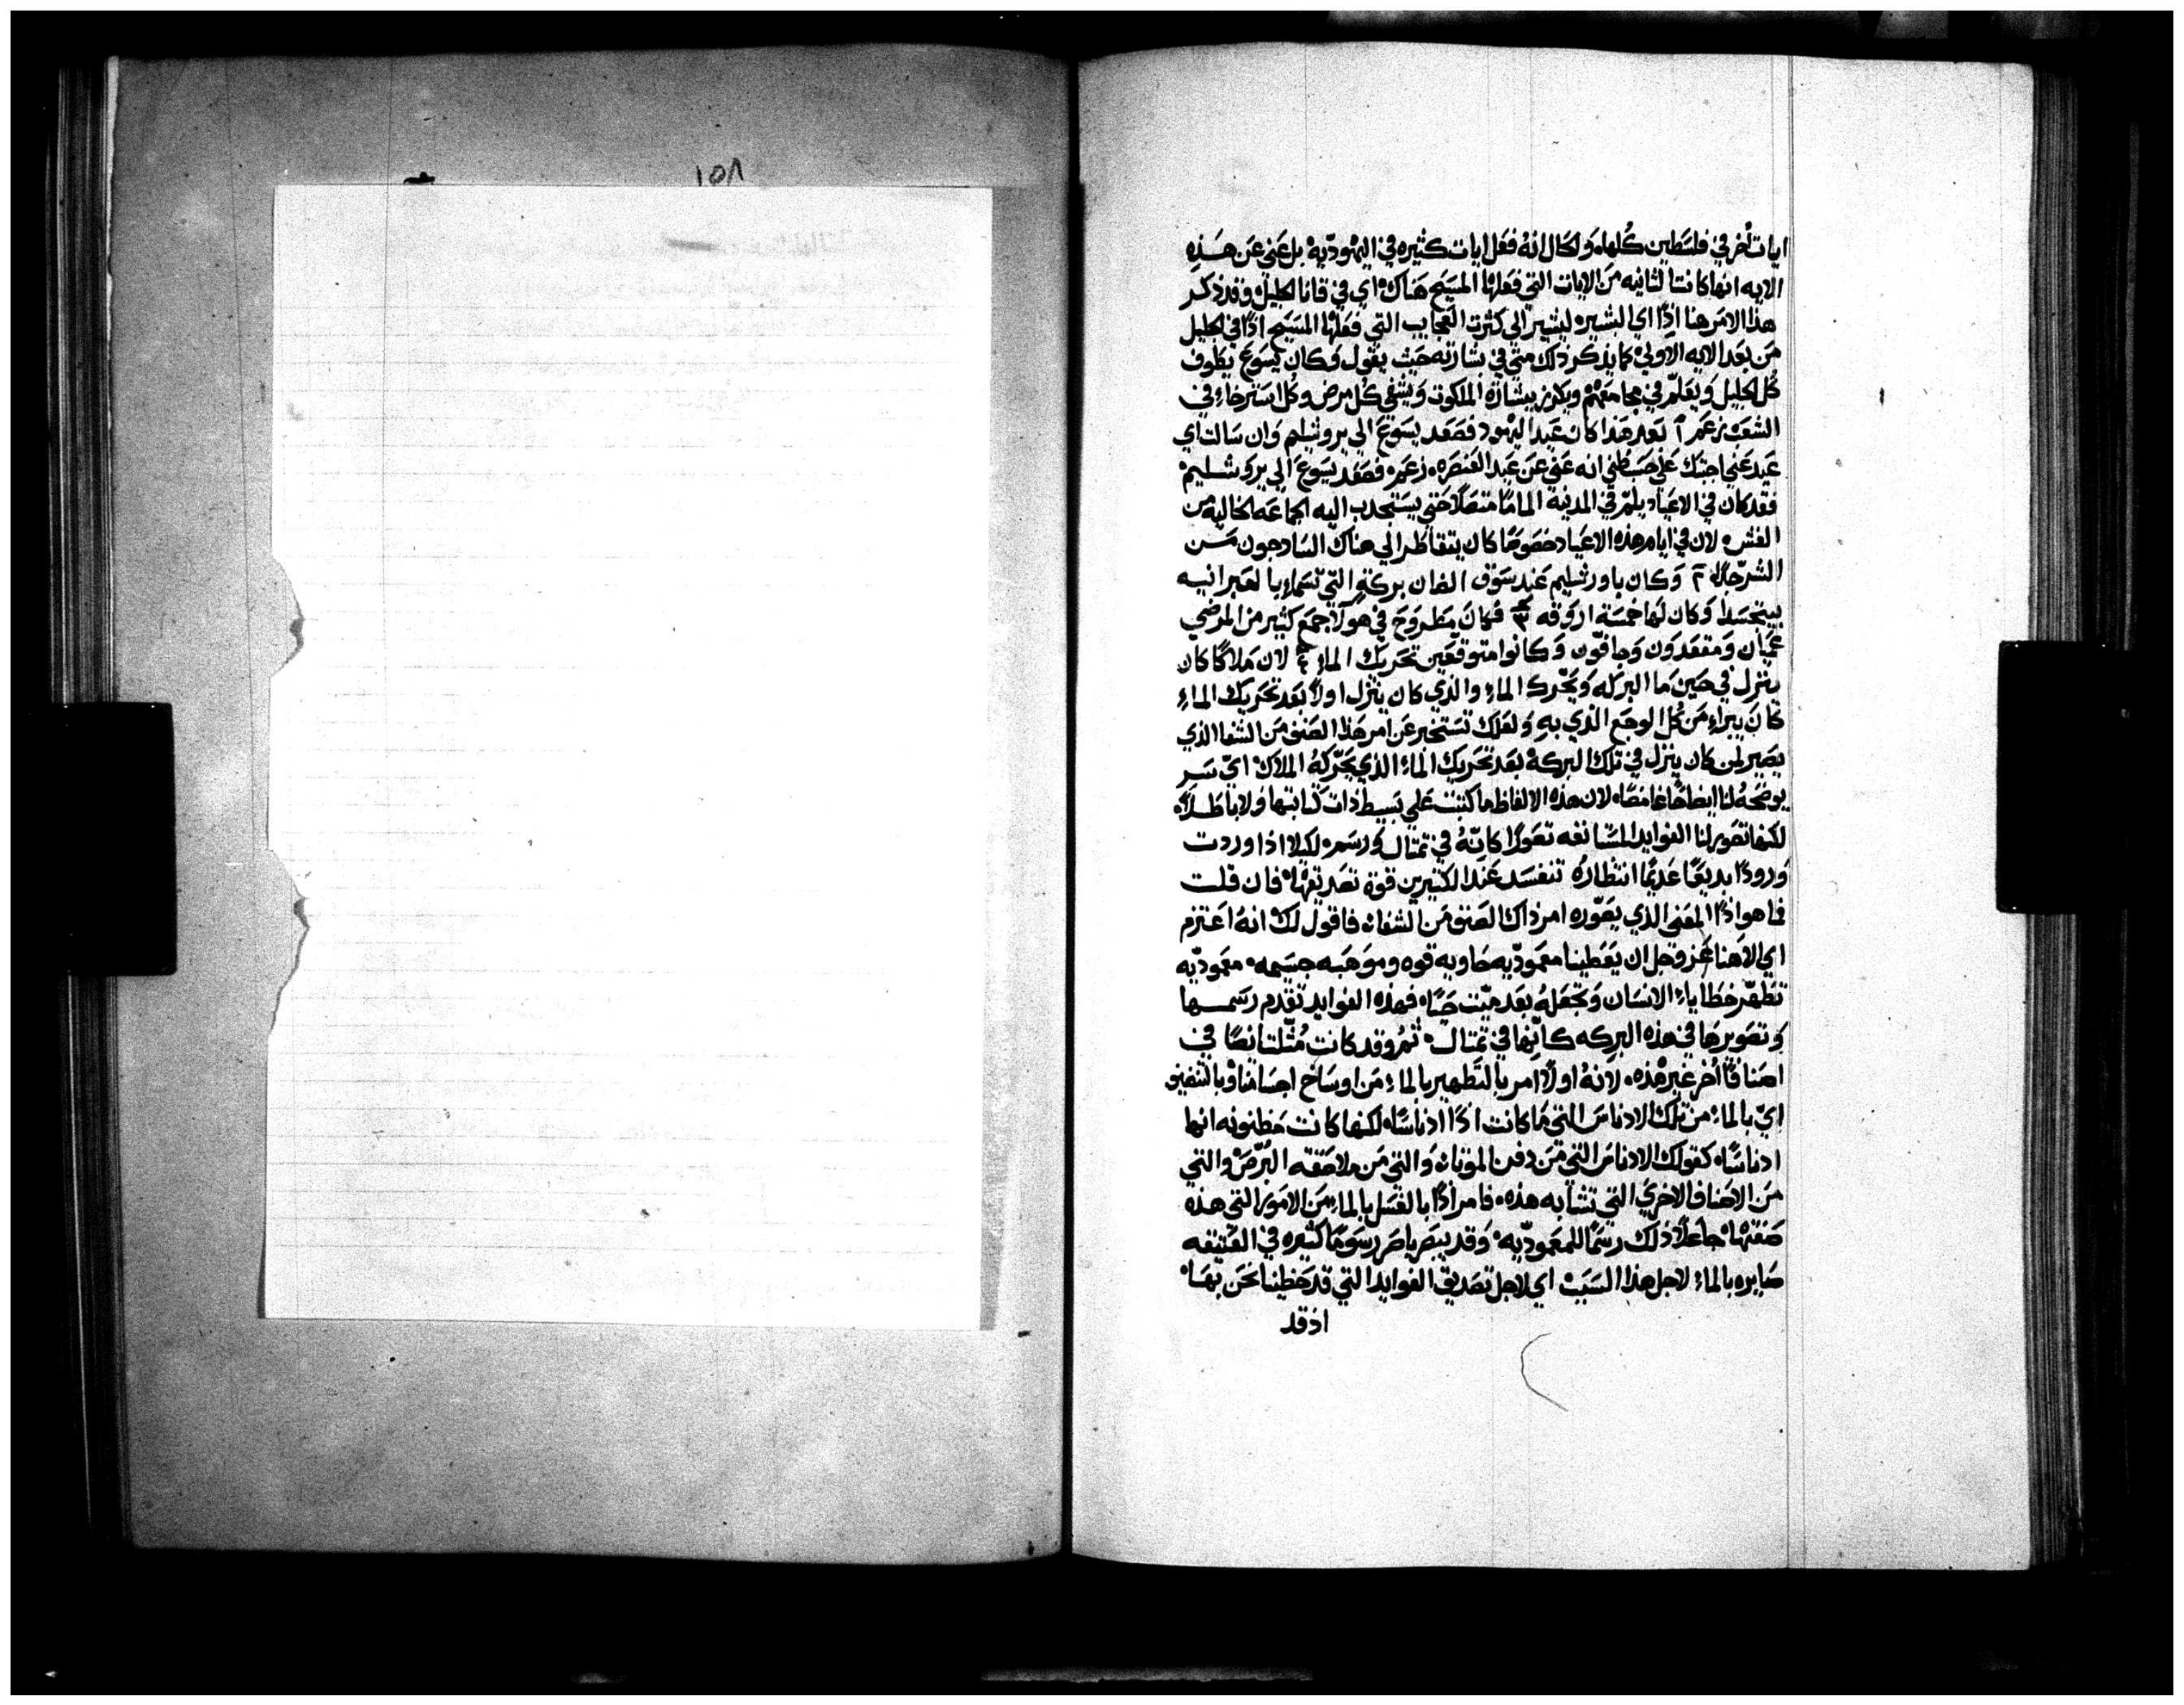 ايات أخر في فلسطين كلها. والحال انه فعل ايات كثيره في اليهوديه بل عني عن هذه
الايه انها كانت الثانيه من الايات التي فعلها المسيح هناك اي في قانا الجليل وقد ذكر
هذا الامر هنا اذًا اي البشير ليشير الى كثرت العجايب التي فعلها المسيح اذًا في الجليل
من بعد الايه الاولي كما يذكر ذلك متي في بشارته حيث يقول وكان يسوع يطوف
كل الجليل ويعلّم في مجامعهم ويكرز ببشارة الملكوت ويشفي كل مرض وكل استرخاء في
الشعب زعم ا بعد هذا كان عيد اليهود فصعد يسوع الي يروشليم وان سالت اي
عيد عني اجبتك علي حسب ظني انه عني عن عيد العنصره. زعم. فصعد يسوع الي يروشليم
فقد كان في الاعياد يلمّ في المدينة المامًا متصلًا حتي يستجدب اليه الجماعه الخاليه من
الغش. لان في ايام هذه الاعياد خصوصًا كان يتقاطر الي هناك السادجون من
الشر جدًا ٢ وكان باورشليم عند سوق الضان بركة التي تسماء بالعبرانيه
بيتحسدا وكان لها خمسة اروقه ٣ فكان مطروح في هولاء جمع كثير من المرضي
عميان ومقعدون وجافّون وكانوا متوقعين تحريك الماء ٤ لان ملاكًا كان
ينزل في حين ما البركه ويحّرك الماء والذي كان ينزل اولًا بعد تحريك الماء
كان يبراء من كل الوجع الذي به ولعلك تستخبر عن امر هذا الصنف من الشفا الذي
يصير لمن كان ينزل في تلك البركة بعد تحريك الماء الذي يحّركهُ الملاك ايّ سر
يوضحهُ لنا ايضاحًا غامضًا. لان هذه الالفاظ ما كتبت علي بسيط ذات كتابتها ولا باطلًا.
لكنها تصور لنا الفوايد المستانفه تصورًا كانّهُ في تمثال ورسم. لكيلا اذا وردت
ورودًا بديعًا عديمًا انتظارهُ تنفسد عند الكثيرين قوة تصديقها. فان قلت
فما هو اذًا المعني الذي يصّوره امر ذاك الصنف من الشفاء فاقول لك انهُ اعتزم
اي الاهنا عز وجل ان يعطينا معموديّه حاويه قوه وموهبه جسيمه. معموديّه
تطهّر خطاياء الانسان وتجعلهُ بعد ميّت حيًا. فهذه الفوايد تقدم رسمها
وتصويرها في هذه البركه كانّها في تمثال ثم وقد كانت مُثّلت ايضًا في
اصنافًا أخر غير هذه. لانهُ اولًا امر بالتطهير بالماء من اوساخ اجسامنا وبالتنضيف
ايّ بالماء من تلك الادناس التي ما كانت اذًا ادناسًا. لكنها كانت مظنونه انها
ادناسًا. كقولك الادناس التي من دفن الموتاء والتي من ملاصقه البُرّص والتي
من الاصناف الاخري التي تشابه هذه. فامر اذًا بالغسل بالماء من الامور التي هذه
صفتها. جاعلًا ذلك رسمًا للمعموديّه وقد يبصر باصر رسومًا كثيره في العتيقه
صايره بالماء لاجل هذا السبب اي لاجل تصديق الفوايد التي قد حظينا نحن بها.
اذ قد
١٥٨